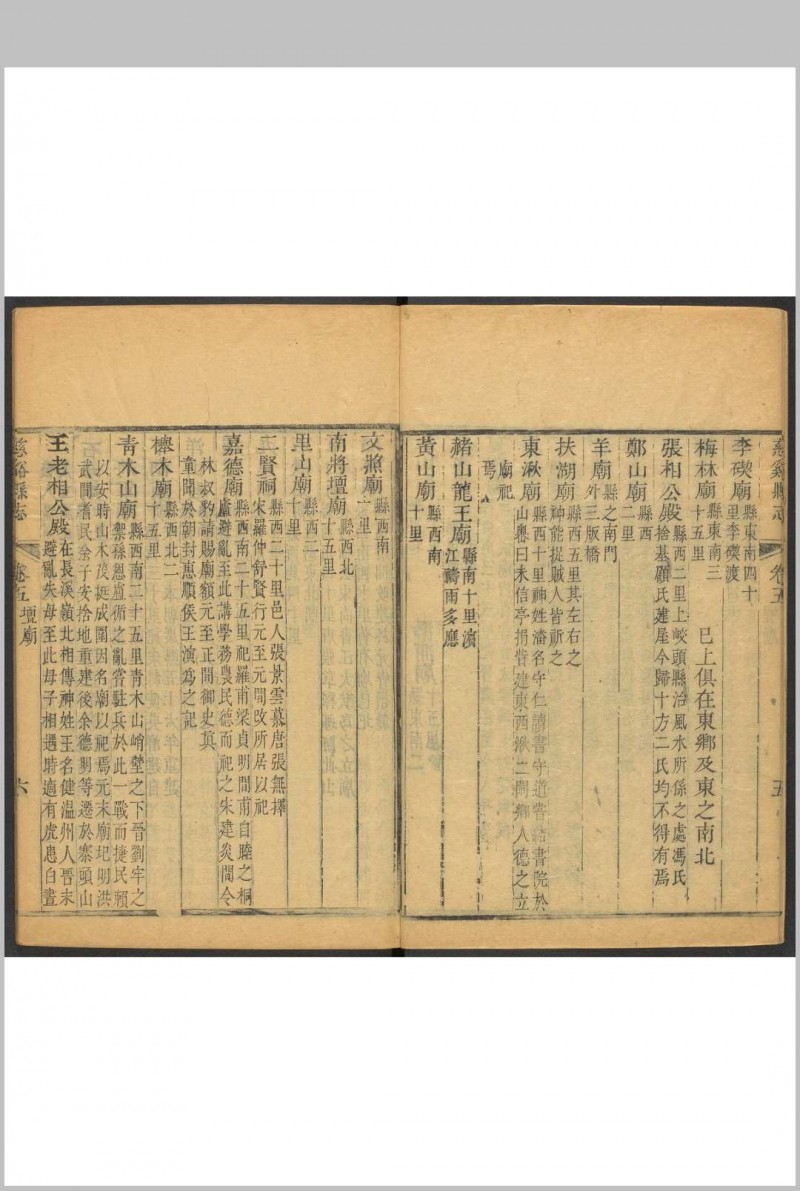 慈谿縣志 卷五 五
李碶廟 縣東南四十
里李碶渡
梅林廟 縣東南三
十五里 已上俱在東鄉及東之南北
張相公殿 縣西二里上峧頭縣治風水所係之處馮氏
捨基顧氏建屋今歸十方二氏均不得有焉
鄭山廟 縣西
二里
羊廟 縣之南門
外三版橋
扶湖廟 縣西五里其左右之
神能捉賊人皆祈之
東湫廟 縣西十里神姓潘名守仁讀書守道嘗 書院於
山粵曰未信亭捐貲建東西湫二閘鄉人德之立
廟祀
焉
赭山龍王廟 縣南十里濱
江禱雨多應
黃山廟 縣西南
十里
文照廟 縣西南
十里
南將壇廟 縣西北
十五里
里山廟 縣西二
十里
二賢祠 縣西二十里邑人張景雲慕唐張無擇
宋羅仲舒賢行元至元間改所居以祀
嘉德廟 縣西南二十五里祀羅甫梁貞明間甫自睦之桐
廬避亂至此講學務農民德而祀之宋建炎間令
林叔豹請賜廟額元至正間御史真
童聞於朝封惠順侯王演為之記
櫸木廟 縣西北二
十五里
青木山廟 縣西南二十五里青木山峭壁之下晉劉牢之
禦孫恩盧循之亂嘗駐兵於此一戰而捷民賴
以安時山木茂挺成圍因名廟以祀焉元末廟圮明洪
武間耆民余子安捨地重建後余德 等遷於寨頭山
王老相公殿 在長溪嶺北相傳神姓王名健温州人晉末
避亂失母至此母子相遇時適有虎患白晝
慈谿縣志 卷五 壇廟 六